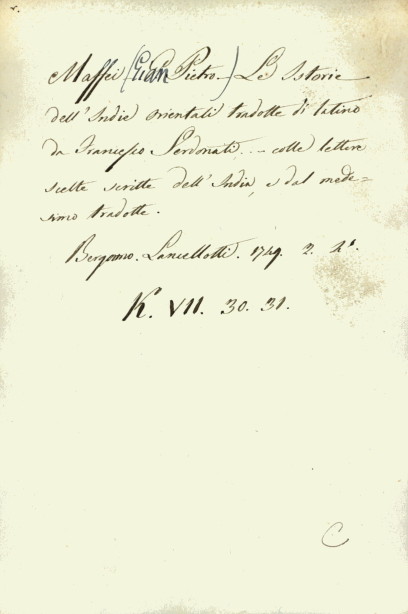 Maffei (Gian Pietro) Le Istorie
dell'Indie orientali tradotte di latino
da Francesco Serdonati, - colle lettere
scelte scritte dell'India, e dal mede=
simo tradotte.
Bergamo. Lancellotti. 1749. 2. 4°.
K. VII. 30. 31.
C